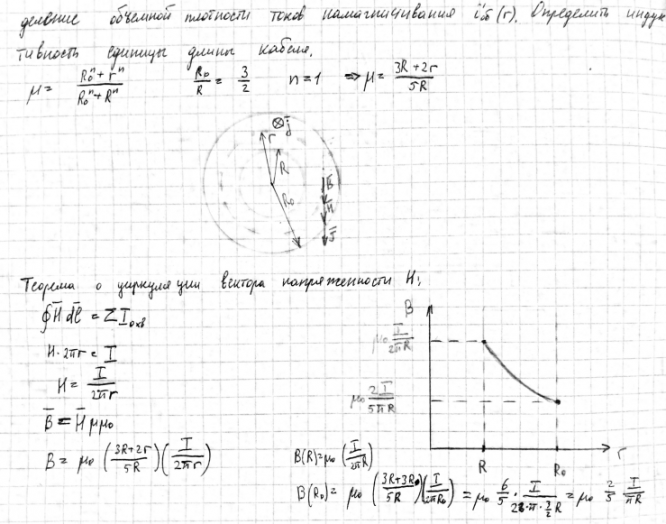 деление объемной плотности токов намагничивания i'об(r). Определить индук
тивность единицы длины кабеля.
μ = (R₀ⁿ + rⁿ)/(R₀ⁿ + Rⁿ)   R₀/R = 3/2   n=1   ⇒ μ = (3R+2r)/5R
⊗ j
r
R
R₀
B
H
J
Теорема о циркуляции вектора напряженности H:
∮H̄ dl̄ = ΣIохв
H·2πr = I
H = I/2πr
B̄ = H̄μμ₀
B = μ₀ ((3R+2r)/5R)(I/2πr)
B
μ₀ I/2πR
μ₀ 2I/5πR
R   R₀   r
B(R)=μ₀ (I/2πR)
B(R₀) = μ₀ ((3R+3R)/5R)(I/2πR₀) = μ₀ 6/5 · I/(2·π·3/2R) = μ₀ 2/5 I/πR